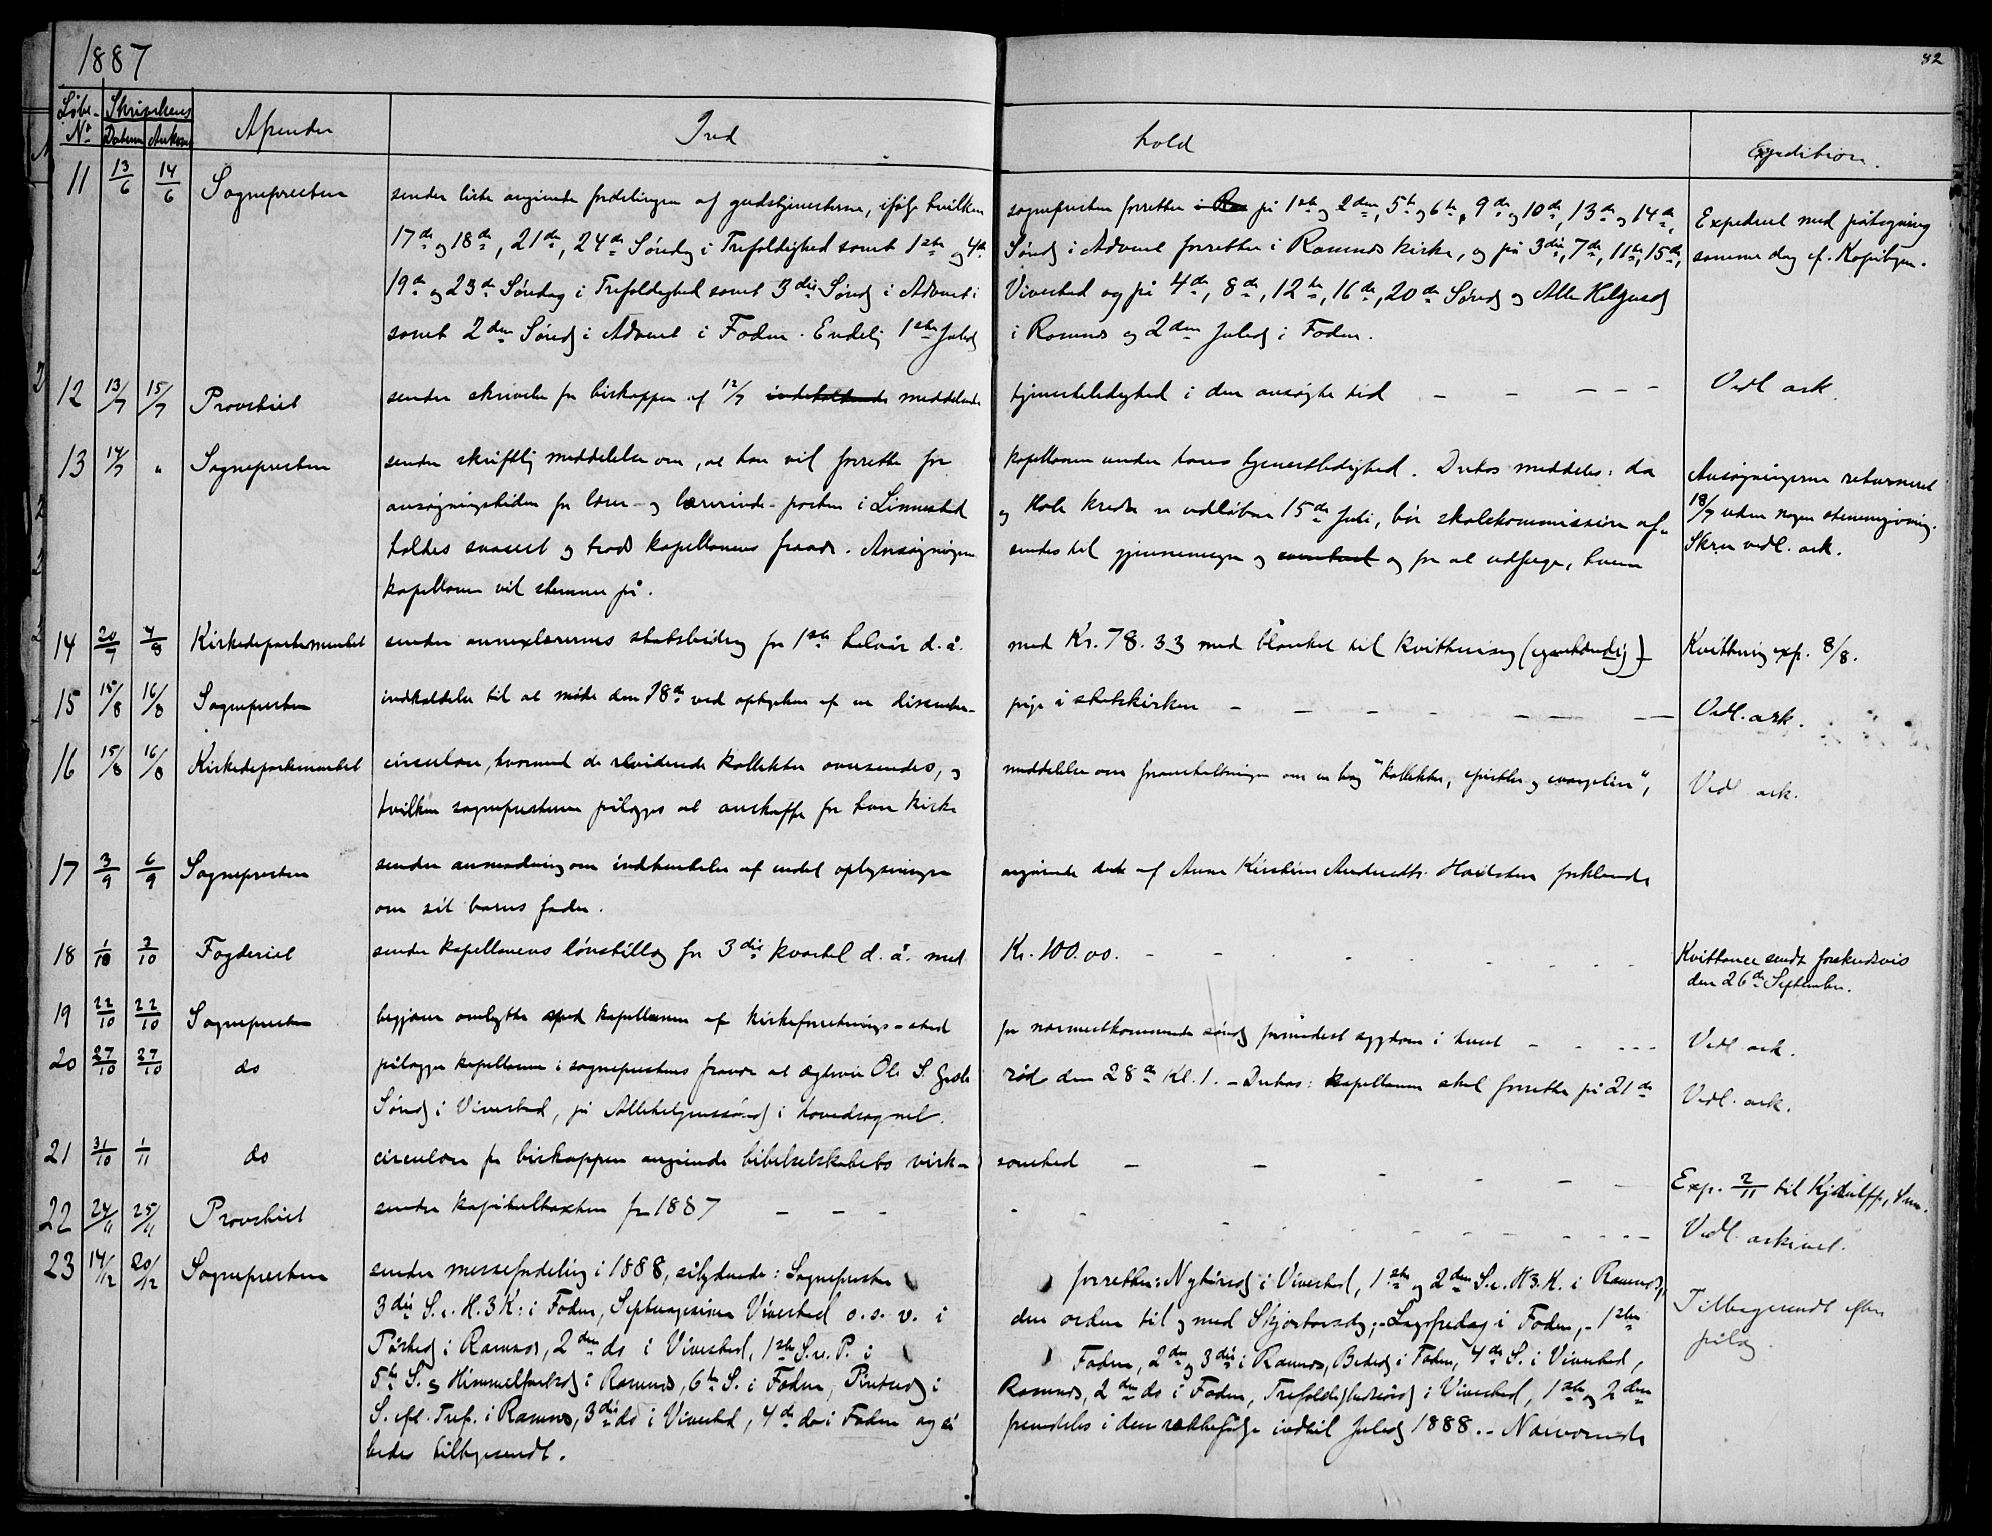 1887
82
Løbe- Skrivelsens Afsender Ind hold Expedition.
No Datum Ankom
11 13/6 14/6 Sognepresten sender liste angivende fordelingen af gudstjenesterne, ifølge hvilken sognepresten forretter i på 1ste og 2den, 5te og 6te, 9de og 10de, 13de og 14de, Expederet med påtegning
17de og 18de, 21de, 24de Søndag i Trefoldighed samt 1ste og 4de Sønd i Advent forretter i Ramnes kirke, og på 3die, 7de, 11te, 15de, samme dag cf. Kopibogen.
19de og 23de Søndag i Trefoldighed samt 3die Sønd i Advent i Vivestad og på 4de, 8de, 12te, 16de, 20de Sønd og Alle Helgensd
samt 2den Sønd i Advent i Fodn. Endelig 1ste Juled i Ramnes og 2den Juled i Foden.
12 13/7 15/7 Provstiet sender skrivelse fra biskoppen af 12/7 indeholdende meddelende tjenesteledighed i den ansøgte tid — — — — — Vedl ark.
13 14/7 " Sognepresten sender skriftlig meddelelse om, at han vil forrette for kapellanen under hans tjenestledighed. Derhos meddeles: da Ansøgningerne returneret
ansøgningstiden for lærer- og lærerinde-posten i Linnestad og Hole kreds er udløben 15de Juli, bør skolekommission af- 18/7 uden nogen stemmegivning.
holdes snarest og trods kapellanens fravær. Ansøgningene sendes til gjennemsyn og eventuel og for at udsige, hvem Skr. vedl. ark.
kapellanen vil stemme på.
14 20/7 7/8 Kirkedepartementet sender annexlærernes statsbidrag for 1ste halvår d. å. med Kr. 78.33 med blanket til kvittering (egenhændig) Kvittering exp. 8/8.
15 15/8 16/8 Sognepresten indkaldelse til at møde den 18de ved optagelsen af en dissenter- pige i statskirken — — — — — Vedl. ark.
16 15/8 16/8 Kirkedepartementet circulære, hvormed de reviderede kollekter oversendes, og meddelelse om foranstaltningen om en bog "kollekter, epistler og evangelier", Vedl ark.
hvilken sognepresterne pålægges at anskaffe for hver kirke
17 3/9 6/9 Sognepresten sender anmodning om indhentelse af endel oplysninger angående det af Anne Kirstine Andersdtr. forklarede
om sit barns fader.
18 1/10 3/10 Fogderiet sender kapellanens lønstillæg for 3die kvartal d. å. med Kr. 100.00. — — — — — — Kvittance sendt forskudsvis
den 26de September.
19 22/10 22/10 Sognepresten begjærer ombytte med kapellanen af kirkeforretnings-sted for nærmestkommende sønd formedelst sygdom i huset — — — Vedl. ark.
20 27/10 27/10 do pålægger kapellanen i sogneprestens fravær at ægtevie Ole S. rød den 28de Kl. 1. — Derhos: kapellanen skal forrette på 21de Vedl. ark.
Sønd i Vivestad, på Allehelgenssønd i hovedsognet.
21 31/10 1/11 do circulære fra biskoppen angående bibelselskabets virk- somhed — — — — — Exp. 2/11 til Kjøstulff,
22 24/11 25/11 Provstiet sender kapitelstaxten for 1887 — — — — — — — Vedl. arkivet.
23 14/12 20/12 Sognepresten sender messefordeling i 1888, sålydende: Sognepresten forretter: Nytårsd i Vivestad, 1ste og 2den S. e. H.3.K. i Ramnes, Tilbagesendt efter
3die S. e. H. 3 K: i Foden, Septuagesima Vivestad o. s. v. i den orden til og med Skjærtorsdag; Langfredag i Foden, - 1ste pålæg.
Påsked i Ramnes, 2den do i Vivestad, 1ste S. e. P. i Foden, 2den og 3die i Ramnes, Beded i Foden, 4de S. i Vivestad,
5te S. og Himmelfartsd i Ramnes, 6te S. i Foden, Pintsed i Ramnes, 2den do i Foden, Trefoldighedssønd i Vivestad, 1ste og 2den
S. eft. Tref. i Ramnes, 3die do i Vivestad, 4de do i Foden og så fremdeles i den rækkefølge indtil Juled 1888. - Nærværende
bedes tilbagesendt.